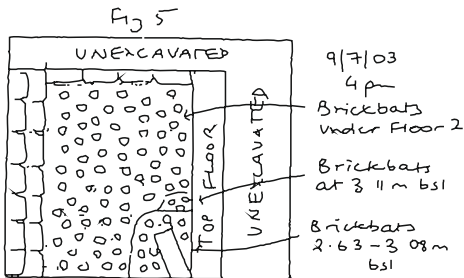 Fig 5
UNEXCAVATED
9/7/03
4 pm
UNEXCAVATED
TOP FLOOR
Brickbats
under Floor 2
Brickbats
at 3 11 m bsl
Brickbats
2.63 - 3 08m
bsl